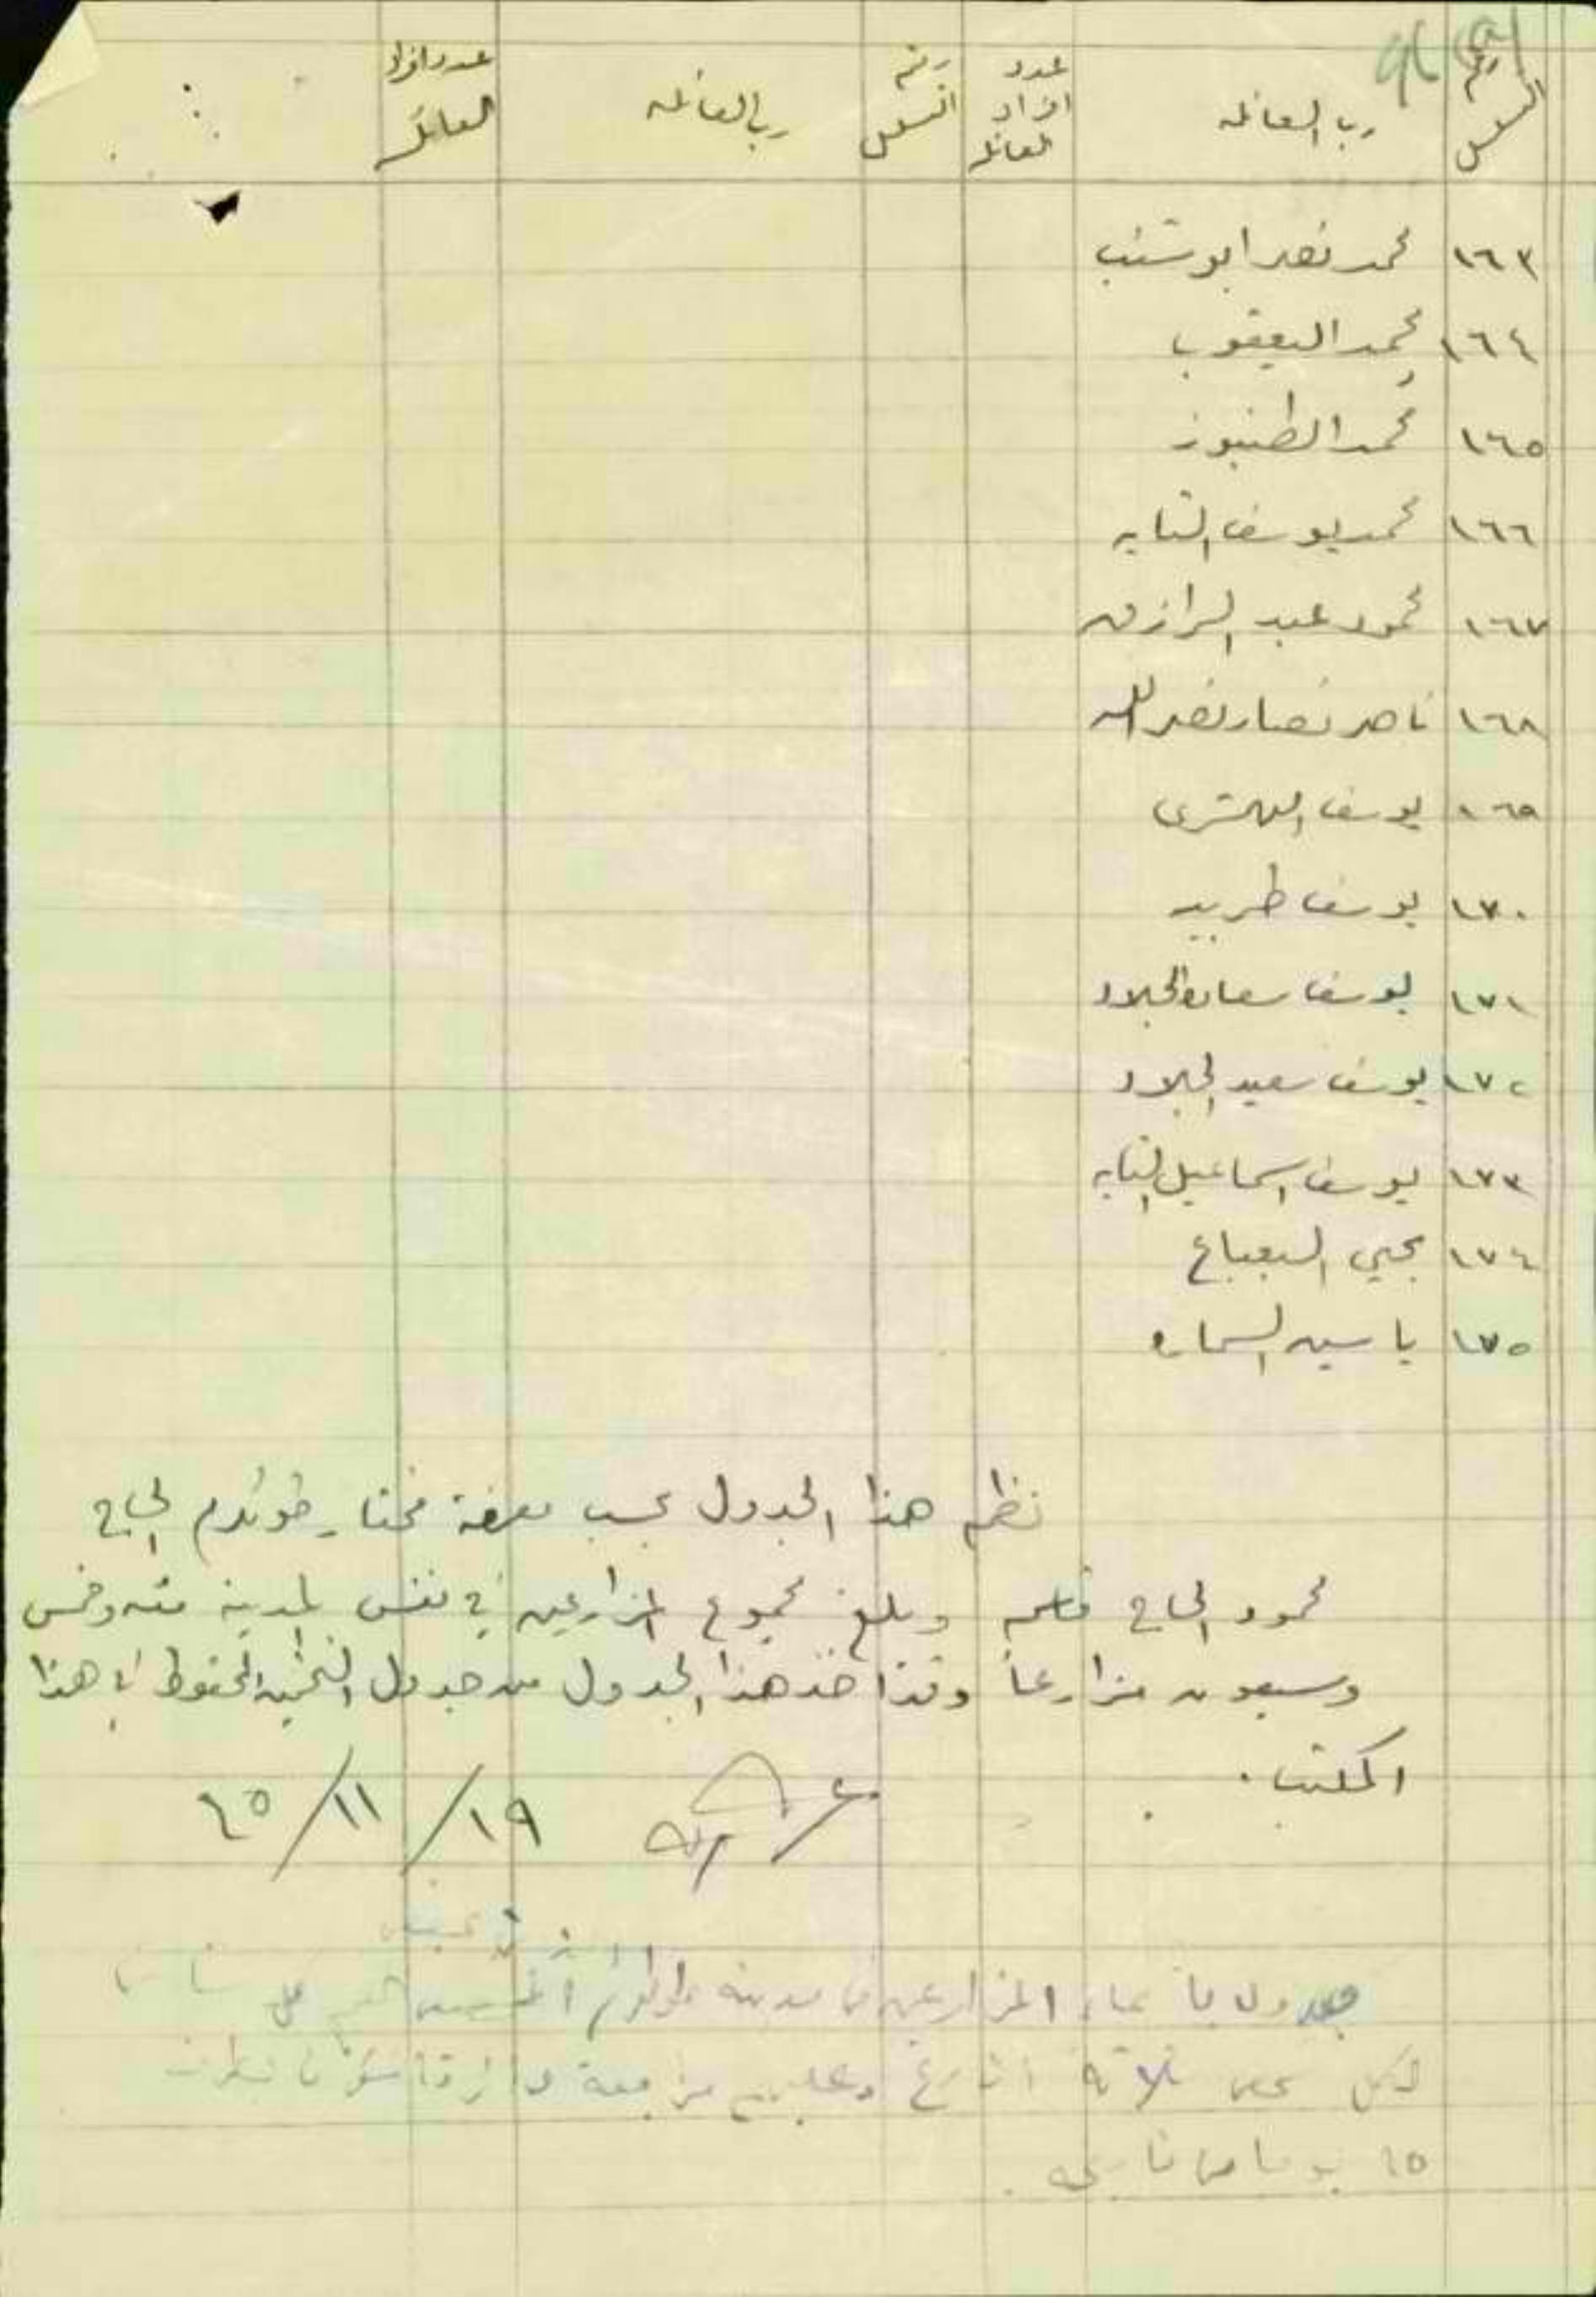 رقم التسلسل رب العائلة عدد افراد العائلة رقم التسلسل رب العائلة عدد افراد العائلة
١٦٣ محمد نصر ابو شنب
١٦٤ محمد اليعقوب
١٦٥ محمد الطنبوز
١٦٦ محمد يوسف التايه
١٦٧ محمود عبد الرازق
١٦٨ ناصر نصار نصر الله
١٦٩ يوسف المهتري
١٧٠ يوسف طربيه
١٧١ يوسف سعاده الجلاد
١٧٢ يوسف سعيد الجلاد
١٧٣ يوسف اسماعيل التايه
١٧٤ يحيى البعباع
١٧٥ ياسين السماره
نظم هذا الجدول بحسب معرفة مختار طولكرم الحاج
محمود الحاج قاسم وبلغ مجموع المزارعين في نفس المدينة مئه وخمس
وسبعون مزارعاً وقد اخذ هذا الجدول من جدول التخمين المحفوظ في هذا
المكتب.
١٩/١١/٤٥
جدول باسماء المزارعين في مدينة طولكرم
لكل ثلاثة وعليهم مراجعة
١٥ يوما من تاريخه.